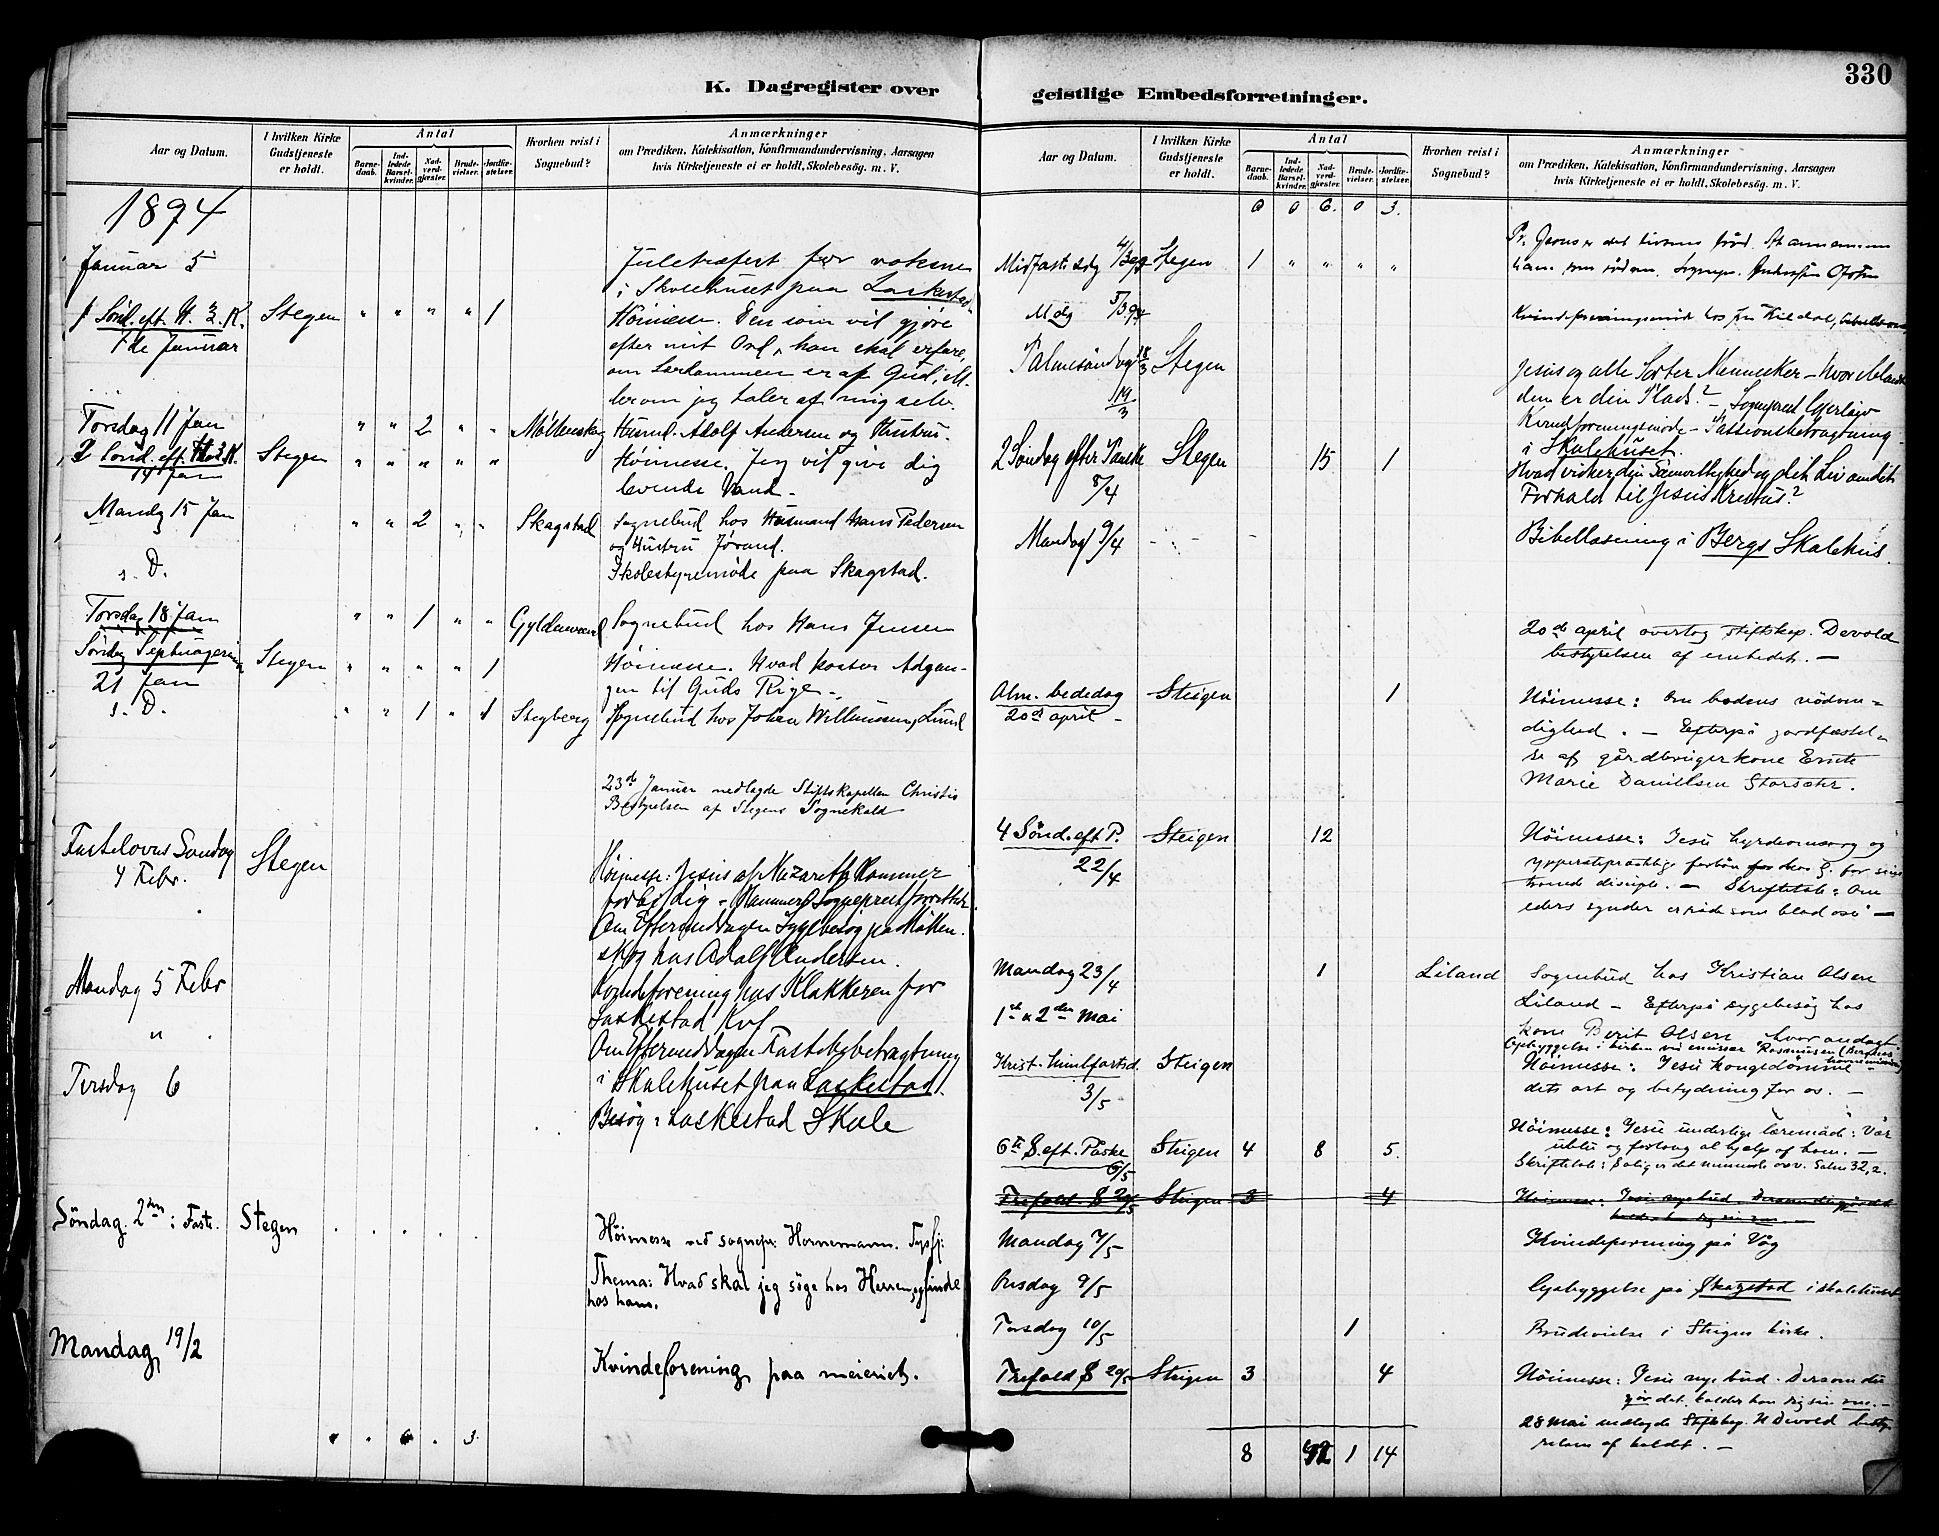 330
K. Dagregister over geistlige Embedsforretninger.
Aar og Datum.
I hvilken Kirke Gudstjeneste er holdt.
Antal
Barnedaab.
Indledede Barselkvinder.
Nadverdgjester.
Brudevielser.
Jordfæstelser.
Hvorhen reist i Sognebud?
Anmærkninger
om Prædiken, Katekisation, Konfirmandundervisning, Aarsagen
hvis Kirketjeneste ei er holdt, Skolebesøg. m. V.
1894
Januar 5
Juletræfest for voksne
i Skolehuset paa Laskestad
1 Sønd. eft. H. 3. K. Stegen " " " " 1 Høimesse. Den som vil gjøre
7de Januar
efter mit Ord, han skal erfare,
om Lærdommen er af Gud, ell.
ler om jeg taler af mig selv.
Torsdag 11 Jan " " 2 " " Möllenskog Husmd. Adolf Andersen og Hustru.
2 Sønd. eft. H. 3. K. Stegen " " " " " Høimesse. Jeg vil give dig
14 Jan
levende Vand.
Mandg 15 Jan " " 2 " " Skagstad Sognebud hos Husmand Hans Pedersen
og Hustru Jørand.
s. D.
Skolestyremöde paa Skagstad.
Torsdag 18 Jan " " 1 " " Sognebud hos Hans Jensen
Søndag Septuagesima Stegen " " " " 1 Høimesse. Hvad koster Adgan-
21 Jan
gen til Guds Rige.
s. D. " " 1 " 1 Stegberg Sognebud hos Johan Willumsen, Lund
23de Januar nedlagde Stiftskapellan Christie
Bestyrelsen af Stegens Sognekald
Fastelavns Sondag Stegen
4 Febr.
Høimesse: Jesus af Nazareth kommer
forbi dig. Hammer Sogneprest forretter.
Om Eftermiddagen Sygebesøg paa Møllen-
skog hos Adolf Andersen.
Mandag 5 Febr
Kvindeforening hos Klokkeren for
Laskestad Kvf
"
Om Eftermiddagen Fastelsbetragtning
i Skolehuset paa Laskestad.
Tirsdag 6
Besøg i Laskestad Skole
Søndag. 2den i Faste. Stegen . . . . . Höimesse ved sognepr. Hornemann. Tysfj:
Thema: Hvad skal jeg söge hos Herren og finde
hos ham.
Mandag 19/2
Kvindeforening paa meieriet.
" " 6 . 3.
Aar og Datum.
I hvilken Kirke Gudstjeneste er holdt.
Antal
Barnedaab.
Indledede Barselkvinder.
Nadverdgjester.
Brudevielser.
Jordfæstelser.
Hvorhen reist i Sognebud?
Anmærkninger
om Prædiken, Katekisation, Konfirmandundervisning, Aarsagen
hvis Kirketjeneste ei er holdt, Skolebesøg. m. V.
0 0 6. 0 3.
Midfaste Sdg 4/3 94 Stegen 1 " " " " Pr. Jesus er det livsens brød.
ham som
Mdg 5/3 94
Kvindeforeningsmöde hos
Palmesöndag 18/3 Stegen
Jesus og alle Sorter Mennesker - hvor iblandt
dem er din Plads? - Sogneprest
19/3
Kvindforeningsmöde - Passionsbetragtning
i Skolehuset.
2 Söndag efter Paaske Stegen 15 1
8/4
Hvad virker din og dit Liv om dit
Forhold til Jesus Kristus?
Mandag 9/4 - - -
Bibellæsning i Bergs Skolehus.
20de april overtog stiftskap. Devold
bestyrelsen af embedet. -
Alm. bededag Steigen 1 Höimesse: Om bodens nödven-
20de april -
dighed. - Efterpå jordfæstel-
se af gårdbrugerkone
Marie Danielsen Storsæter.
4 Sönd. eft P. Steigen 12 Höimesse: Jesu hyrdeomsorg og
22/4
ypperstepræstlige forbön for sine
troende disciple. - Skriftetale: Om
eders synder er röde som blod osv. -
Mandag 23/4 1 Liland Sognebud hos Kristian Olsen
Liland - Efterpå sygebesög hos
kone Berit Olsen hvor andagt
1ste & 2den Mai
Opbyggelse i kirken ved emissær Rasmussen
Krist. himlfartsd. Steigen Höimesse: Jesu kongedömme
3/5
dets art og betydning for os. -
6te S. eft. Påske Steigen 4 8 5. Höimesse: Jesu underlige læremåde: Vær
6/5
ublu og forlang al hjelp af ham. -
Skriftetale: Salig er det menneske osv. Salm 32, 2.
Trefold S 20/5 Steigen 3 4 Höimesse: Jesu nye bud. Dersom du gör det
kalder han dig sin ven. -
Mandag 7/5
Kvindeforening på Våg
Onsdag 9/5
Opbyggelse på Skagstad i skolehuset
Torsdag 10/5 1 Brudevielse i Steigen kirke.
Trefold S 20/5 Steigen 3 4 Höimesse: Jesu nye bud. Dersom du
gör det, kalder han dig sin ven. -
28 Mai nedlagde Stiftskap. H Devold besty
relsen af kaldet. -
8 42 1 14